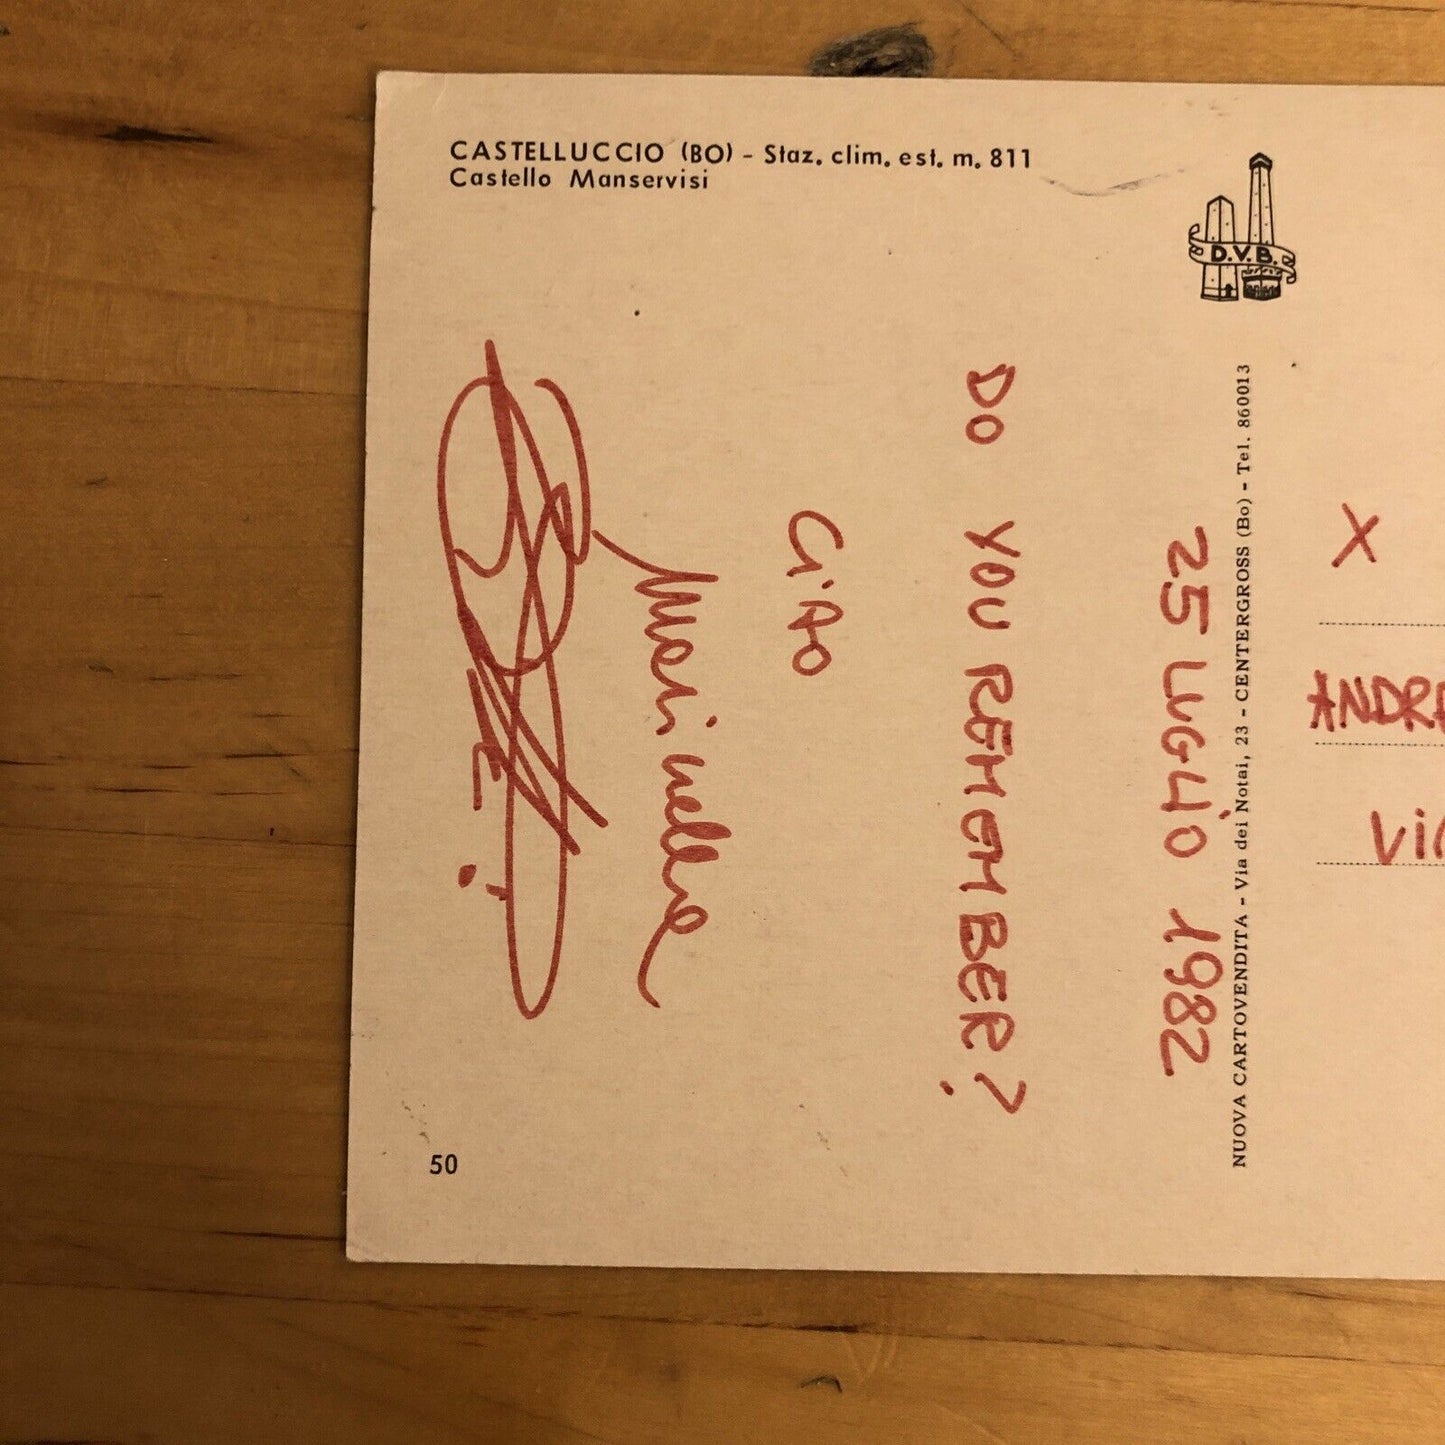 CASTELLUCCIO (BO) - Staz. clim. est. m. 811
Castello Manservisi
D.V.B.
NUOVA CARTOVENDITA - Via dei Notai, 23 - CENTERGROSS (Bo) - Tel. 860013
25 LUGLIO 1982
DO YOU REMEMBER?
CIAO
Marinella
X
ANDRE
Vi
50